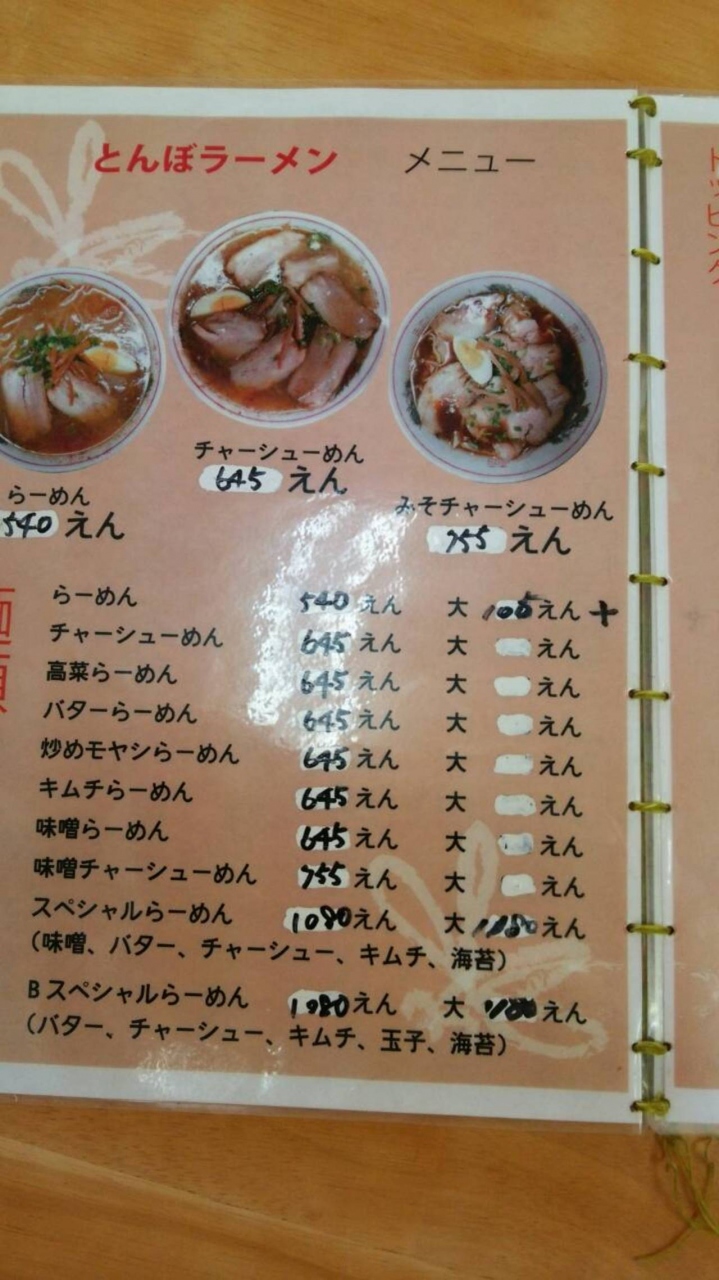 とんぼラーメン メニュー
トッピング
チャーシューめん
645 えん
らーめん
540 えん
みそチャーシューめん
755 えん
麺類
らーめん 540 えん 大 105えん +
チャーシューめん 645 えん 大 えん
高菜らーめん 645 えん 大 えん
バターらーめん 645 えん 大 えん
炒めモヤシらーめん 645 えん 大 えん
キムチらーめん 645 えん 大 えん
味噌らーめん 645 えん 大 えん
味噌チャーシューめん 755 えん 大 えん
スペシャルらーめん 1080えん 大 えん
(味噌、バター、チャーシュー、キムチ、海苔)
Bスペシャルらーめん 1080えん 大 えん
(バター、チャーシュー、キムチ、玉子、海苔)